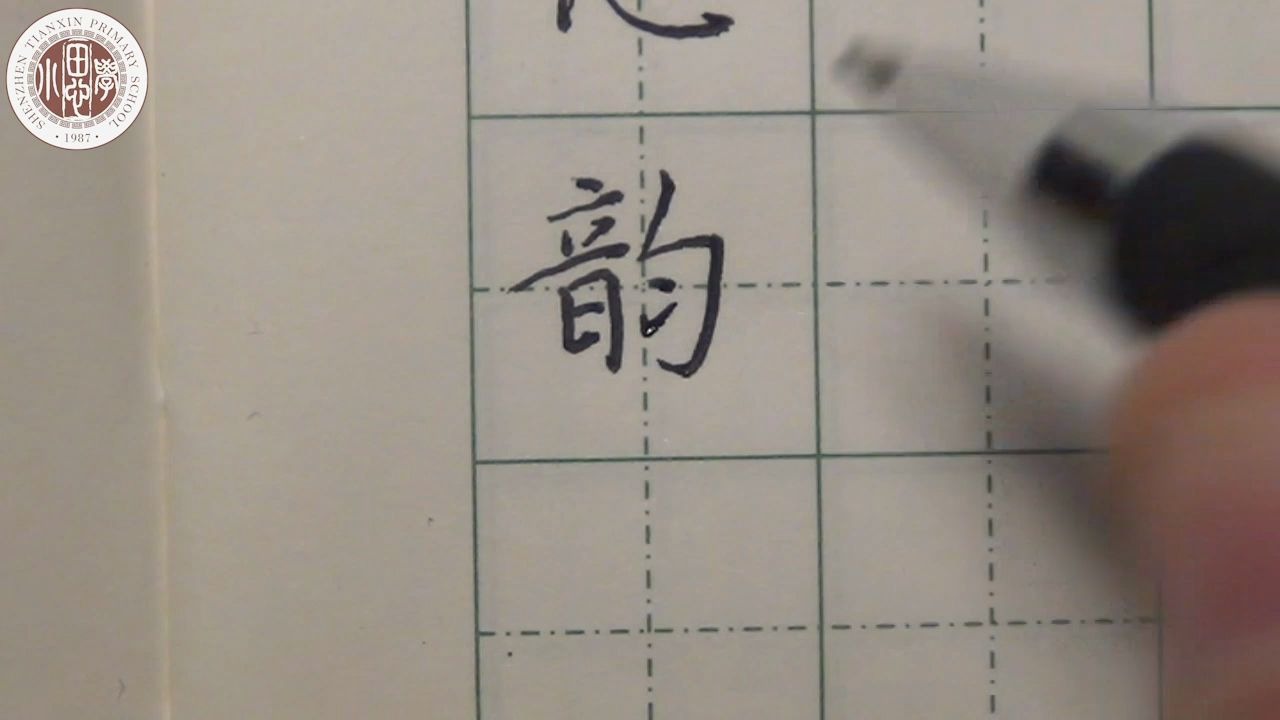 SHENZHEN TIANXIN PRIMARY SCHOOL
田心
小學
·1987·
韵